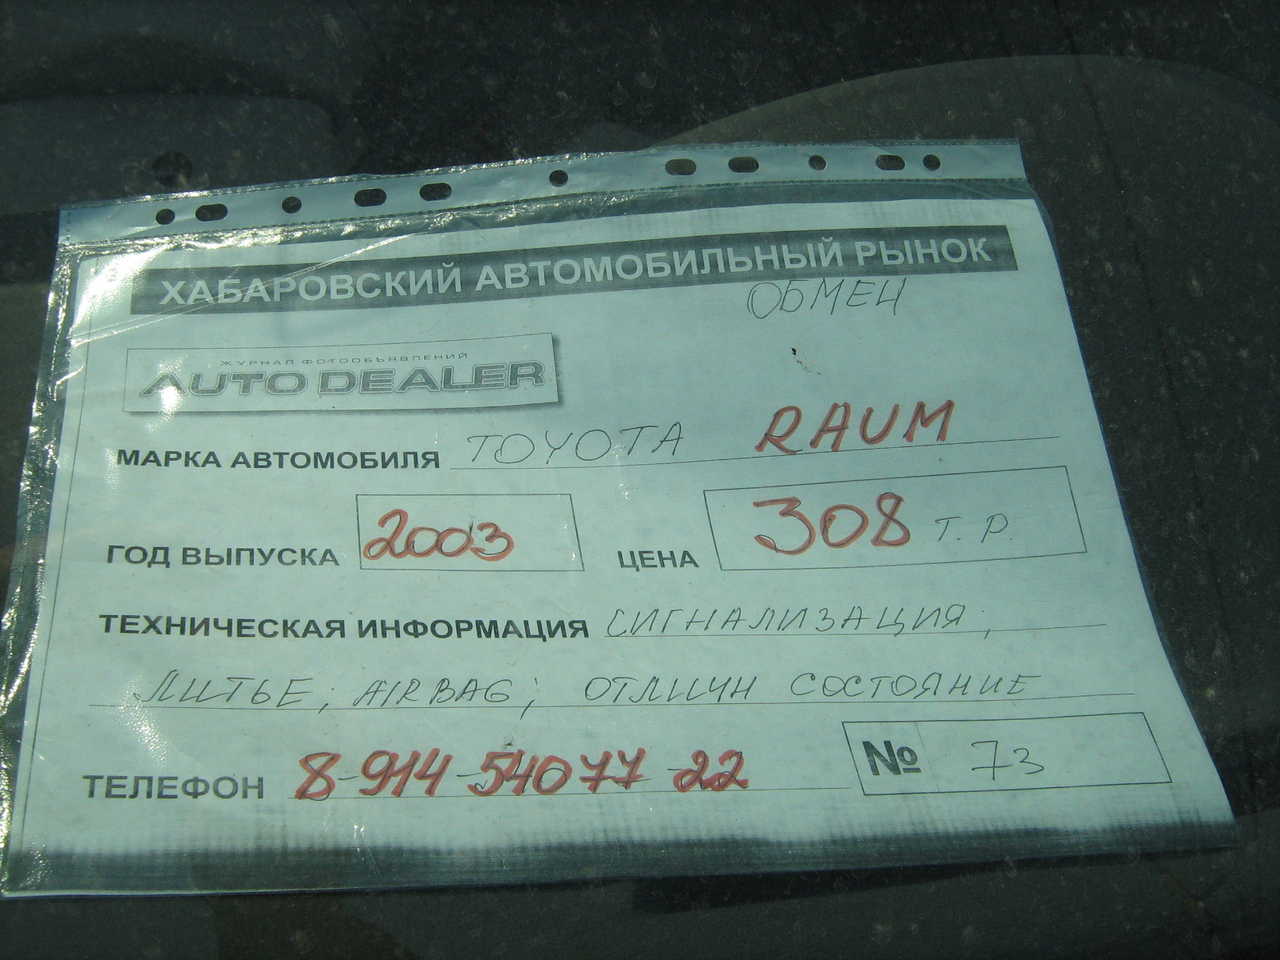 ХАБАРОВСКИЙ АВТОМОБИЛЬНЫЙ РЫНОК
ОБМЕН
ЖУРНАЛ ФОТООБЪЯВЛЕНИЙ
AUTO DEALER
МАРКА АВТОМОБИЛЯ TOYOTA RAUM
ГОД ВЫПУСКА 2003 ЦЕНА 308 Т. Р.
ТЕХНИЧЕСКАЯ ИНФОРМАЦИЯ СИГНАЛИЗАЦИЯ;
ЛИТЬЕ; AIRBAG; ОТЛИЧН СОСТОЯНИЕ
ТЕЛЕФОН 8-914-54077-22 № 73